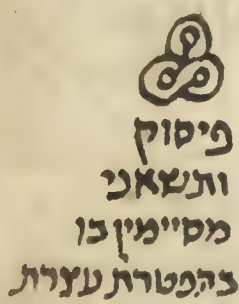 פיסוק
ותשאני
מסיימין בו
בהפטרת עצרת